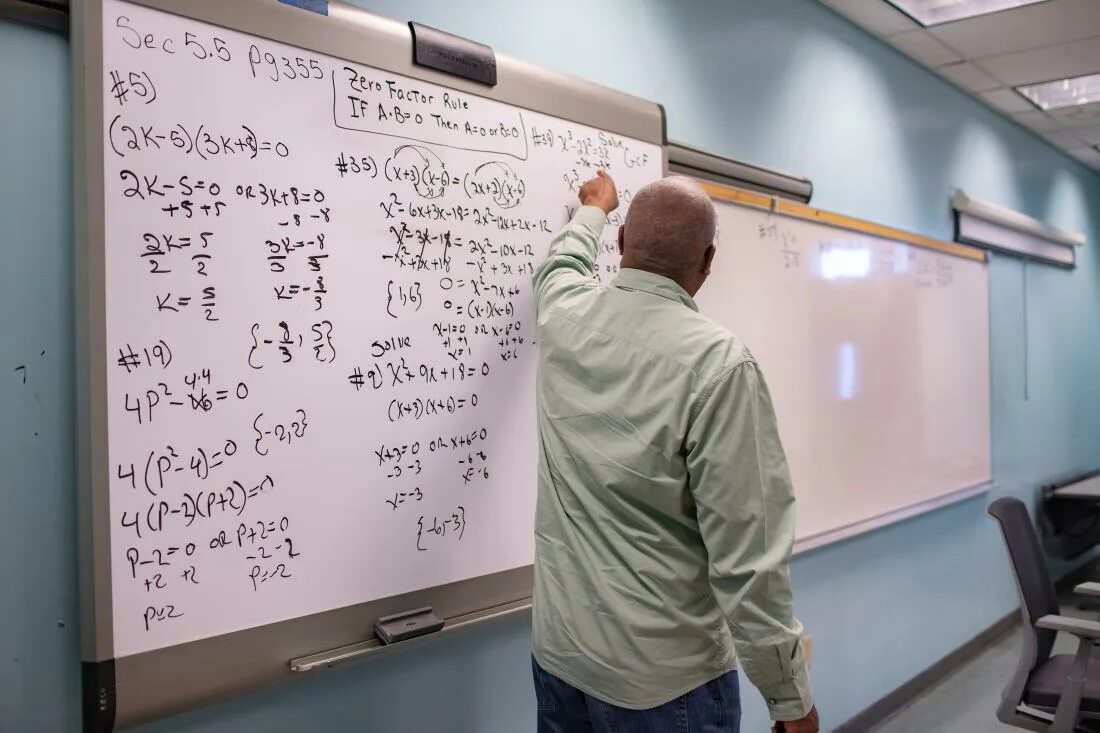 Sec 5.5 pg355
#5)
(2K-5)(3K+8)=0
2K-5=0 OR 3K+8=0
+5 +5 -8 -8
2K = 5 3K = -8
2 2 3 3
K = 5/2 K = -8/3
{-8/3, 5/2}
#19)
4·4
4P²-16=0
{-2,2}
4(P²-4)=0
4(P-2)(P+2)=0
P-2=0 OR P+2=0
+2 +2 -2 -2
P=2 P=-2
Zero Factor Rule
IF A·B=0 Then A=0 or B=0
#35) (x+3)(x-6)=(2x+2)(x-6)
x²-6x+3x-18=2x²-12x+2x-12
x²-3x-18=2x²-10x-12
-x²+3x+18 -x²+3x+18
0=x²-7x+6
{1,6}
0=(x-1)(x-6)
x-1=0 OR x-6=0
+1 +1 +6 +6
x=1 x=6
Solve
#9) x²+9x+18=0
(x+3)(x+6)=0
x+3=0 OR x+6=0
-3 -3 -6 -6
x=-3 x=-6
{-6,-3}
Solve
#39) x³-2x²=3x
-3x -3x
GCF
x³